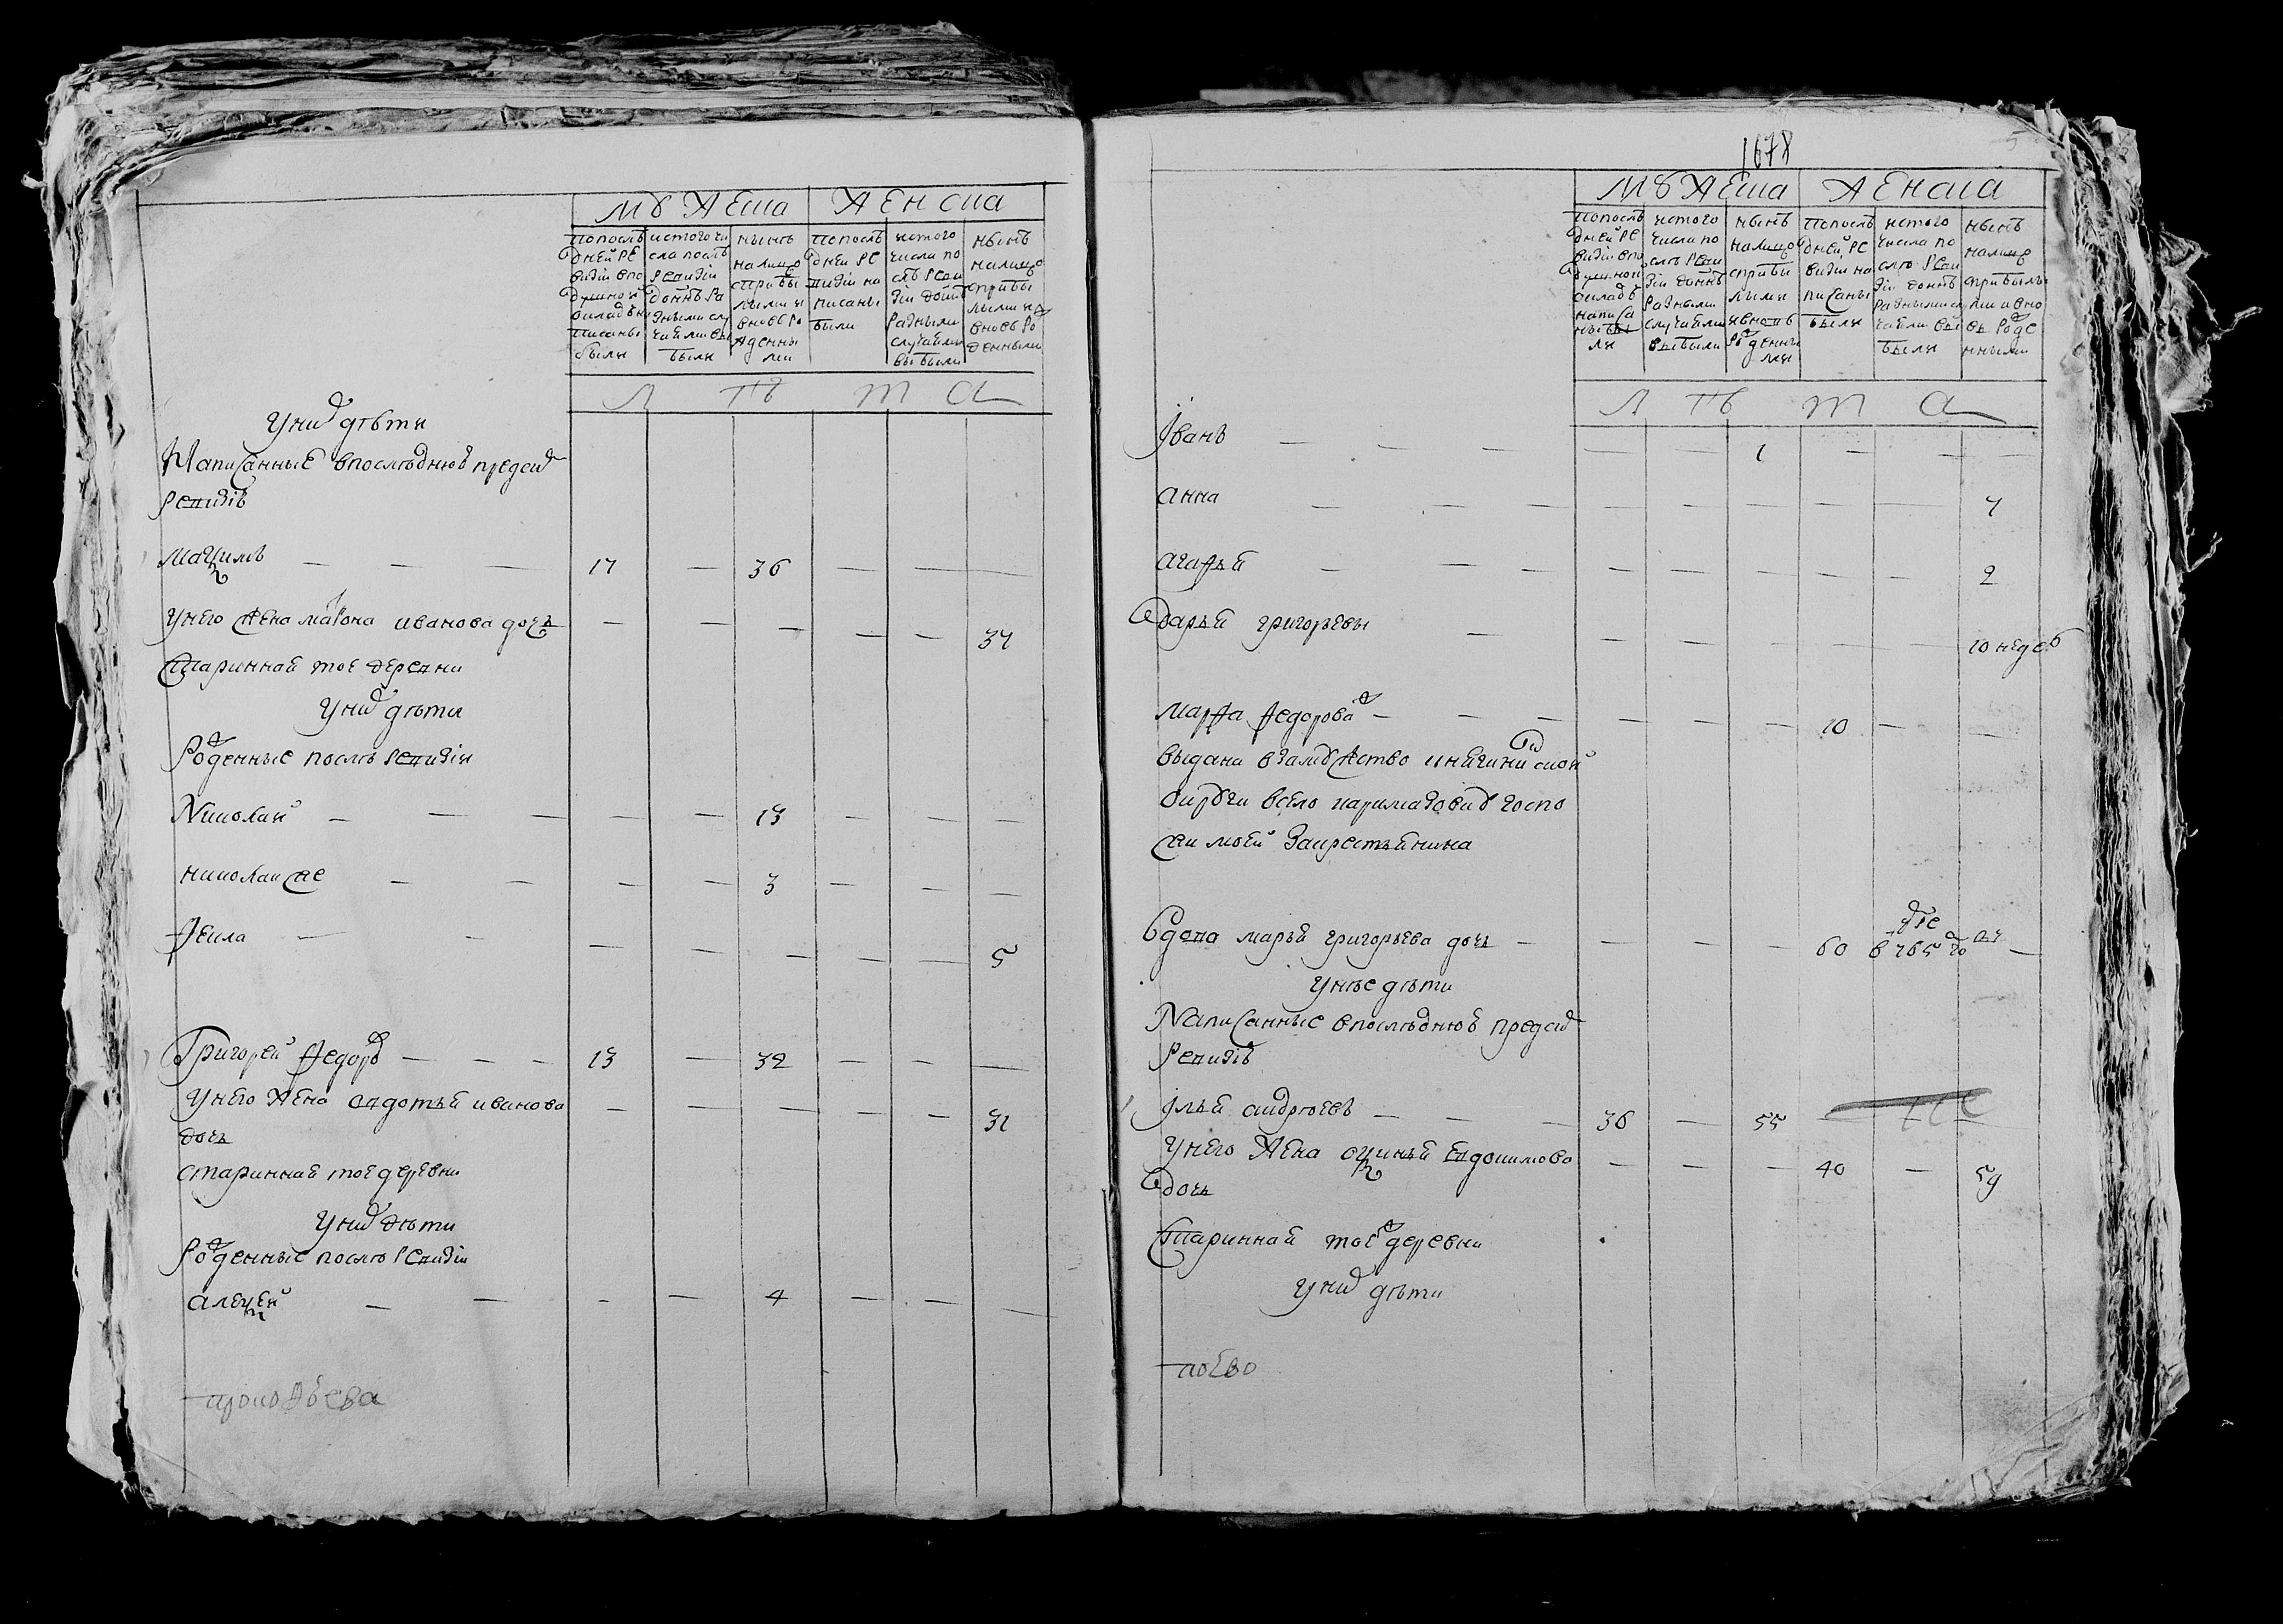 мужеска женска
попослѣдней ревизіи вподушной окладъ написаны были
истого числа послѣ ревизіи доннѣ разными случаями выбыли
нынѣ налицо сприбылыми и вновь рожденными
попослѣдней ревизіи написаны были
истого числа послѣ ревизіи доннѣ разными случаями выбыли
нынѣ налицо сприбылыми и вновь рожденными
лѣта
Уних дѣти
Написанные впослѣднюю предсим
ревизію
максимъ — — — 17 — 36 — — —
Унего жена матрона иванова дочь — — — — — 34
Стариннаѧ тое деревни
Уних дѣти
Рожденные послѣ ревизіи
Николай — — — — — 13 — — —
николай же — — — — 3 — — —
Фекла — — — — — — — 5
Григорей Федоров — — — 13 — 32 — — —
Унего жена авдотьѧ иванова — — — — — 31
дочь
стариннаѧ тое деревни
Уних дѣти
Рожденные послѣ ревизіи
алексей — — — — 4 — — —
прокофьева
1678
мужеска женска
попослѣдней ревизіи вподушной окладъ написаны были
истого числа послѣ ревизіи доннѣ разными случаями выбыли
нынѣ налицо сприбылыми ивновь рожденными
попослѣдней ревизіи написаны были
истого числа послѣ ревизіи доннѣ разными случаями выбыли
нынѣ налицо сприбылыми ивновь рожденными
лѣта
Іванъ — — — — — 1 — — —
анна — — — — — — — — 4
агафьѧ — — — — — — — 2
дарьѧ григорьевы — — — — — — 10 недел
марфа федорова — — — — — — 10 — —
выдана взамужство
госпо
жи моей закрестьѧнина
вдова марьѧ григорьева дочь — — — — 60 в 765 году —
Унее дѣти
Написанные впослѣднюю предсим
ревизію
Ільѧ андрѣевъ — — — 36 — 55
Унего жена аксиньѧ евдокимова — — — 40 — 59
дочь
Стариннаѧ тоеж деревни
Уних дѣти